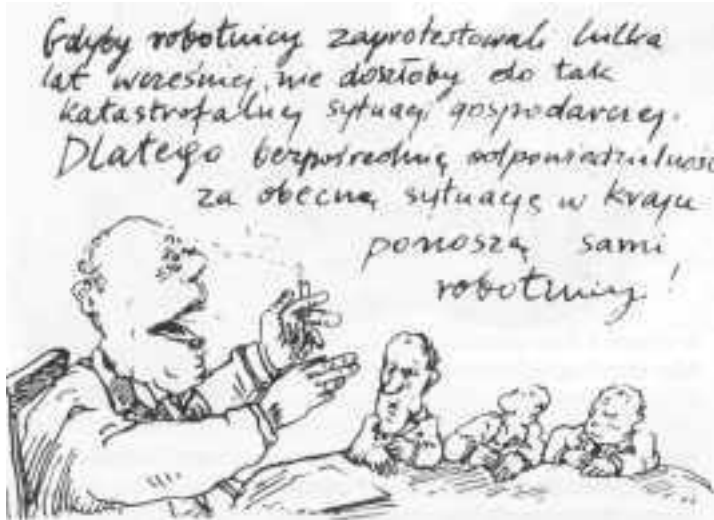 Gdyby robotnicy zaprotestowali kilka
lat wcześniej, nie doszłoby do tak
katastrofalnej sytuacji gospodarczej.
Dlatego bezpośrednią odpowiedzialność
za obecną sytuację w kraju
ponoszą sami
robotnicy!